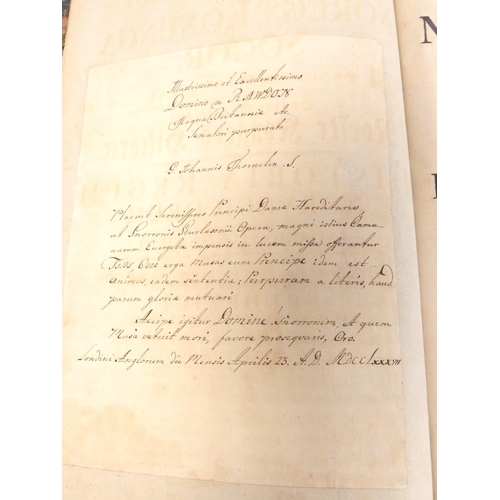 Illustrissimo et Excellentissimo
Domino de RAWDON
Magnae Britanniae &c.
Senatori purpurato
G. Johannis Thorkelin S.
Placuit Serenissimo Principi Daniae Haereditario,
ut Snorronis Sturlasonii Opera, magni istius Camae-
narum Evergetae impensis in lucem missa offerantur
Tibi, Cui erga Musas cum Principe idem est
animus, eadem sententia; Purpuram a literis, haud
parum gloriae mutuari
Accipe igitur Domine! Snorronem, et quem
Musa vetuit mori, favore prosequaris, Oro.
Londini Anglorum die Mensis Aprilis 23. A. D.
N